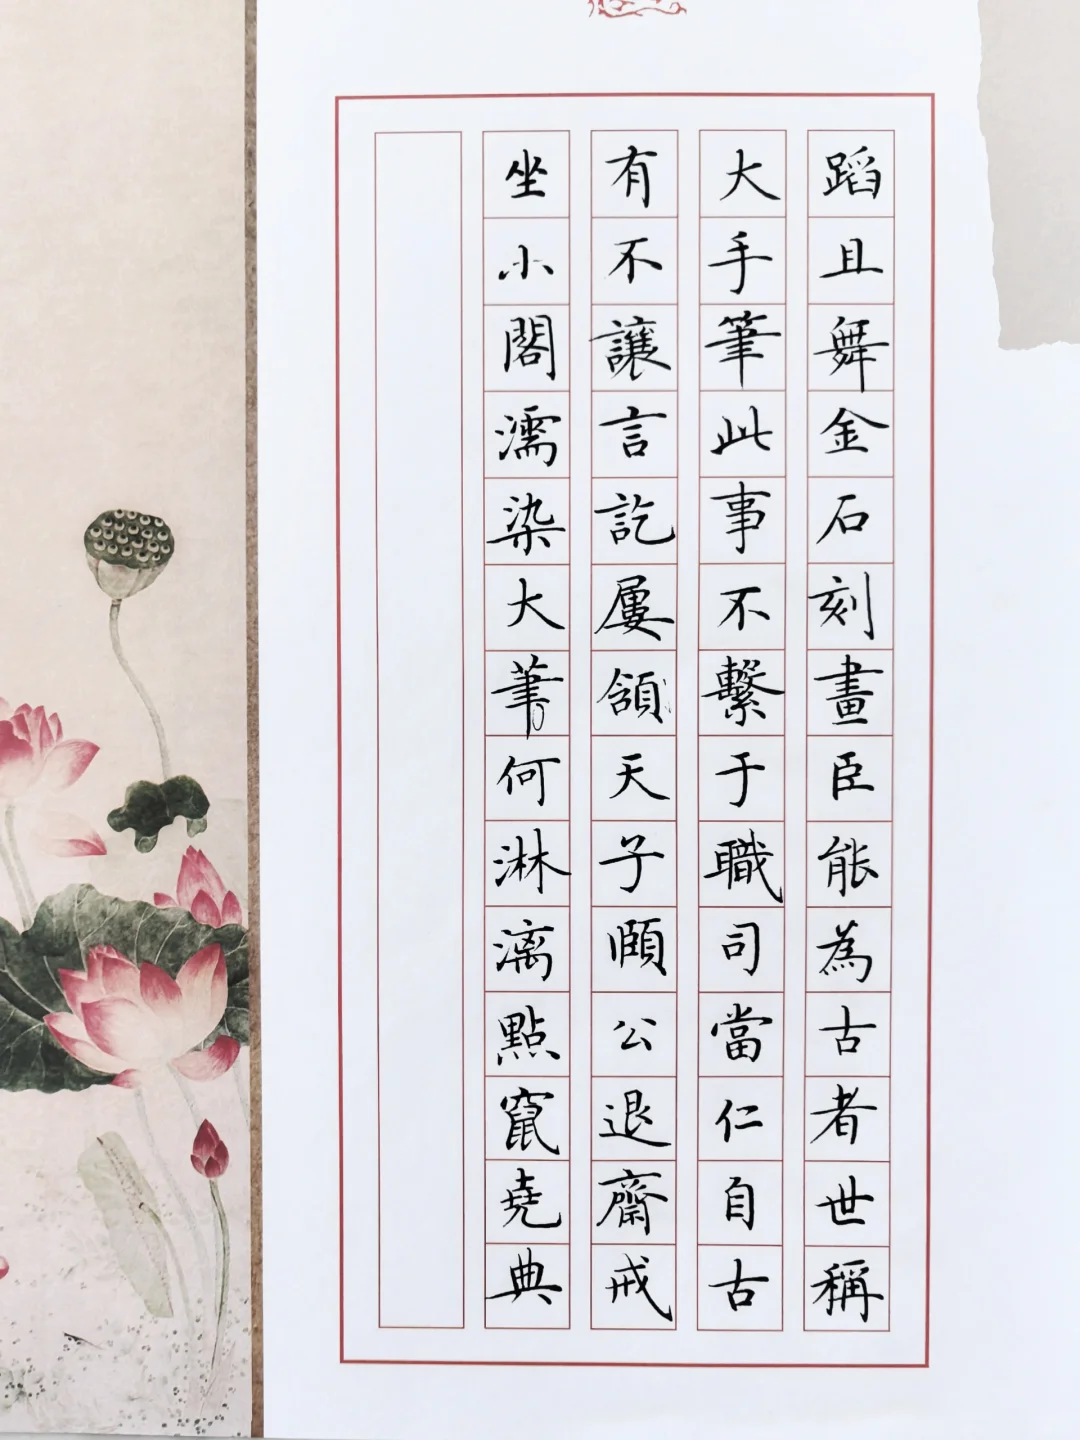 蹈且舞金石刻畫臣能為古者世稱
大手筆此事不繫于職司當仁自古
有不讓言訖屢頷天子頤公退齋戒
坐小閣濡染大筆何淋漓點竄堯典